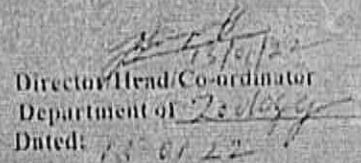 13/01/22
Director/Head/Co-ordinator
Department of Zoology
Dated: 13 01 22